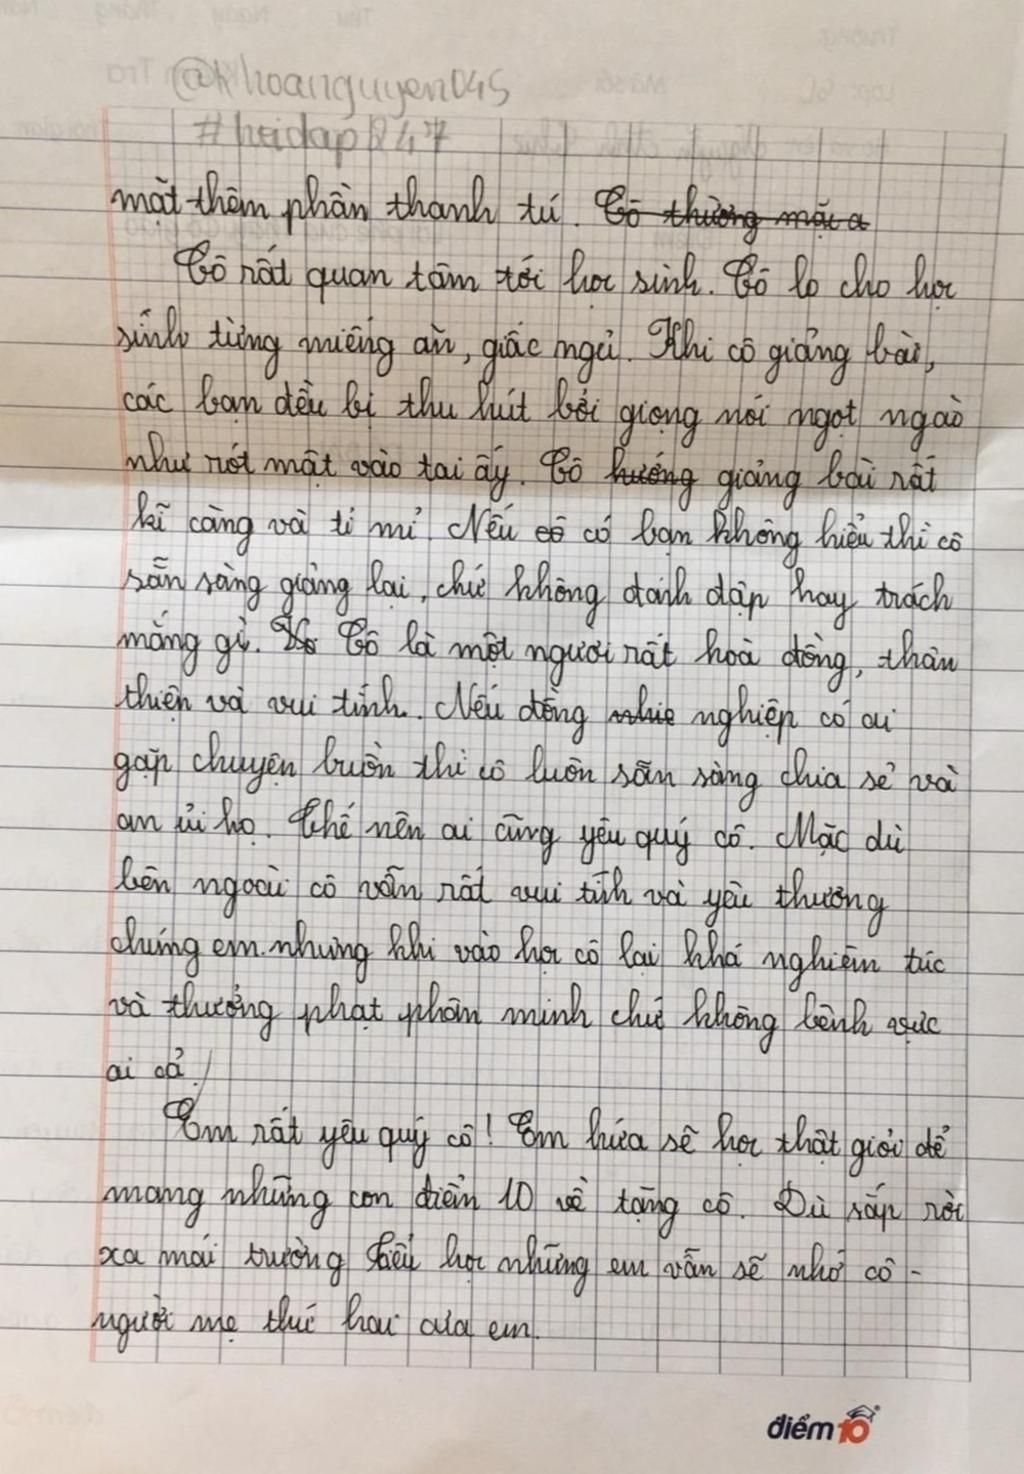 @khoanguyen045
#hoidap247
mặt thêm phần thanh tú. Cô thường mặc a
Cô rất quan tâm tới học sinh. Cô lo cho học
sinh từng miếng ăn, giấc ngủ. Khi cô giảng bài,
các bạn đều bị thu hút bởi giọng nói ngọt ngào
như rót mật vào tai ấy. Cô hướng giảng bài rất
kĩ càng và tỉ mỉ. Nếu cô có bạn không hiểu thì cô
sẵn sàng giảng lại, chứ không đánh đập hay trách
mắng gì. Vo Cô là một người rất hoà đồng, thân
thiện và vui tính. Nếu đồng nhiệ nghiệp có ai
gặp chuyện buồn thì cô luôn sẵn sàng chia sẻ và
an ủi họ. Thế nên ai cũng yêu quý cô. Mặc dù
bên ngoài cô vẫn rất vui tính và yêu thương
chúng em.nhưng khi vào học cô lại khá nghiêm túc
và thưởng phạt phân minh chứ không bênh vực
ai cả.
Em rất yêu quý cô! Em hứa sẽ học thật giỏi để
mang những con điểm 10 về tặng cô. Dù sắp rời
xa mái trường tiểu học nhưng em vẫn sẽ nhớ cô -
người mẹ thứ hai của em.
điểm10